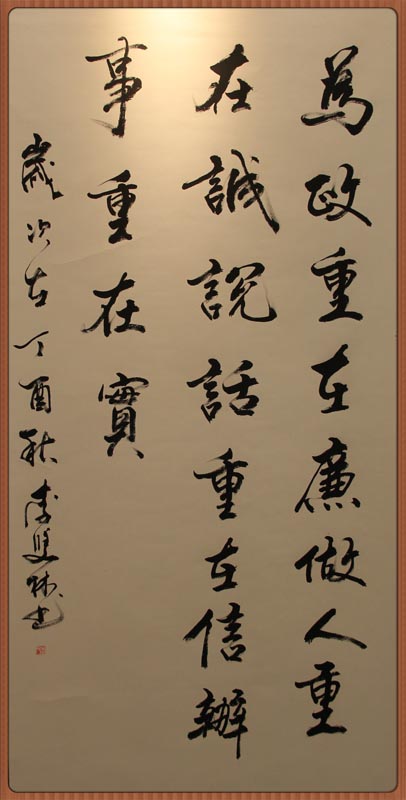 為政重在廉做人重
在誠説話重在信辦
事重在實
歲次在丁酉秋李雙林書